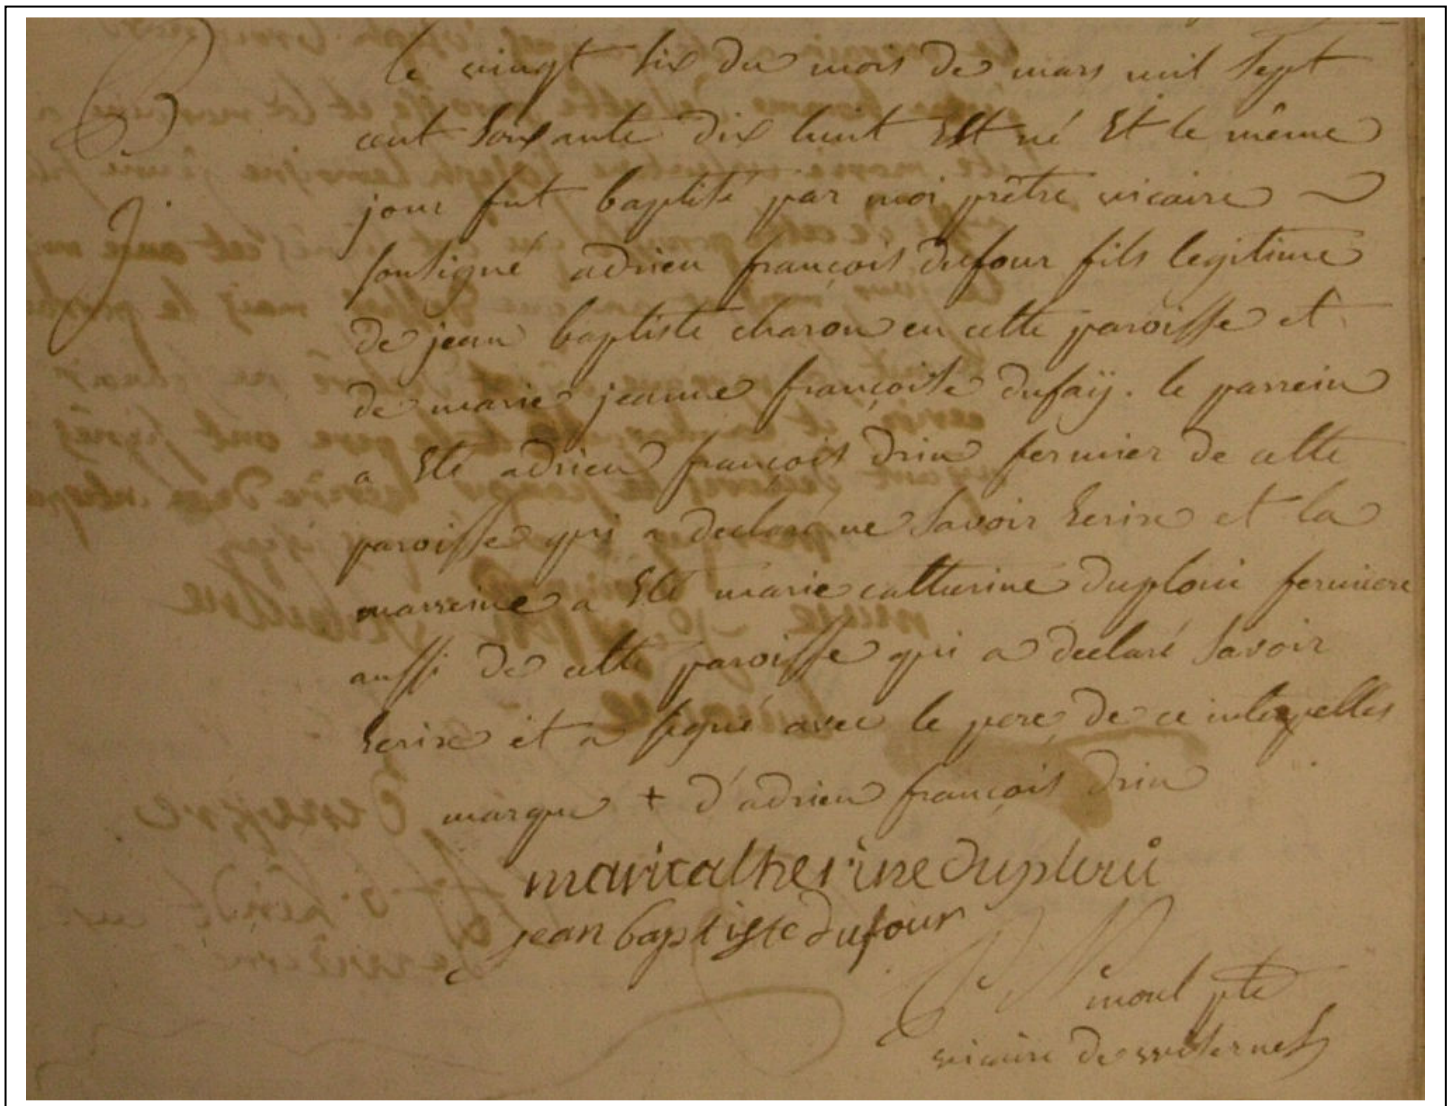 le vingt six du mois de mars mil sept
cent soixante dix huit est né et le même
jour fut baptisé par moi prêtre vicaire
soussigné adrien françois dufour fils legitime
de jean baptiste charon en cette paroisse et
de marie jeanne françoise dufaÿ. le parrein
a été adrien françois drin fermier de cette
paroisse qui a declaré ne savoir ecrire et la
marreine a été marie catherine duploui fermiere
aussi de cette paroisse qui a declaré savoir
ecrire et a signé avec le pere de ce interpelles
marque + d'adrien françois drin
marie catherine duploui
jean baptiste dufour
ptre
vicaire de wisternes